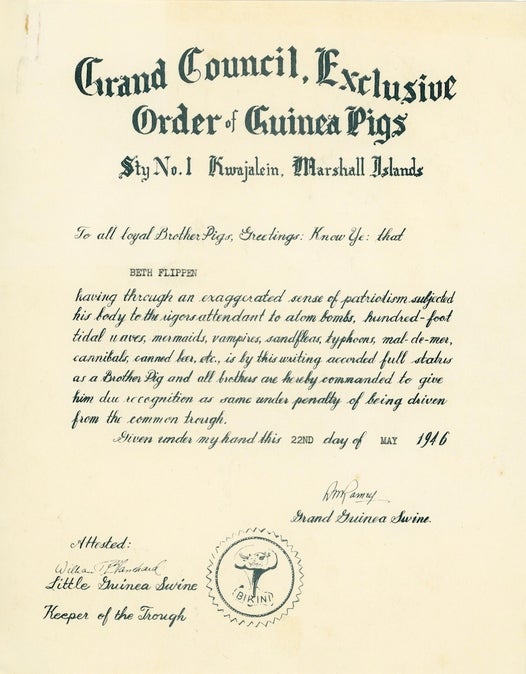 Grand Council, Exclusive
Order of Guinea Pigs
Sty No. 1 Kwajalein, Marshall Islands
To all loyal Brother Pigs, Greetings: Know Ye: that
BETH FLIPPEN
having through an exaggerated sense of patriotism subjected
his body to the rigors attendant to atom bombs, hundred-foot
tidal waves, mermaids, vampires, sandfleas, typhoons, mal-de-mer,
cannibals, canned beer, etc., is by this writing accorded full status
as a Brother Pig and all brothers are hereby commanded to give
him due recognition as same under penalty of being driven
from the common trough.
Given under my hand this 22ND day of MAY 1946
Ramey
Grand Guinea Swine.
Attested:
William Blanchard
Little Guinea Swine
Keeper of the Trough
BIKINI